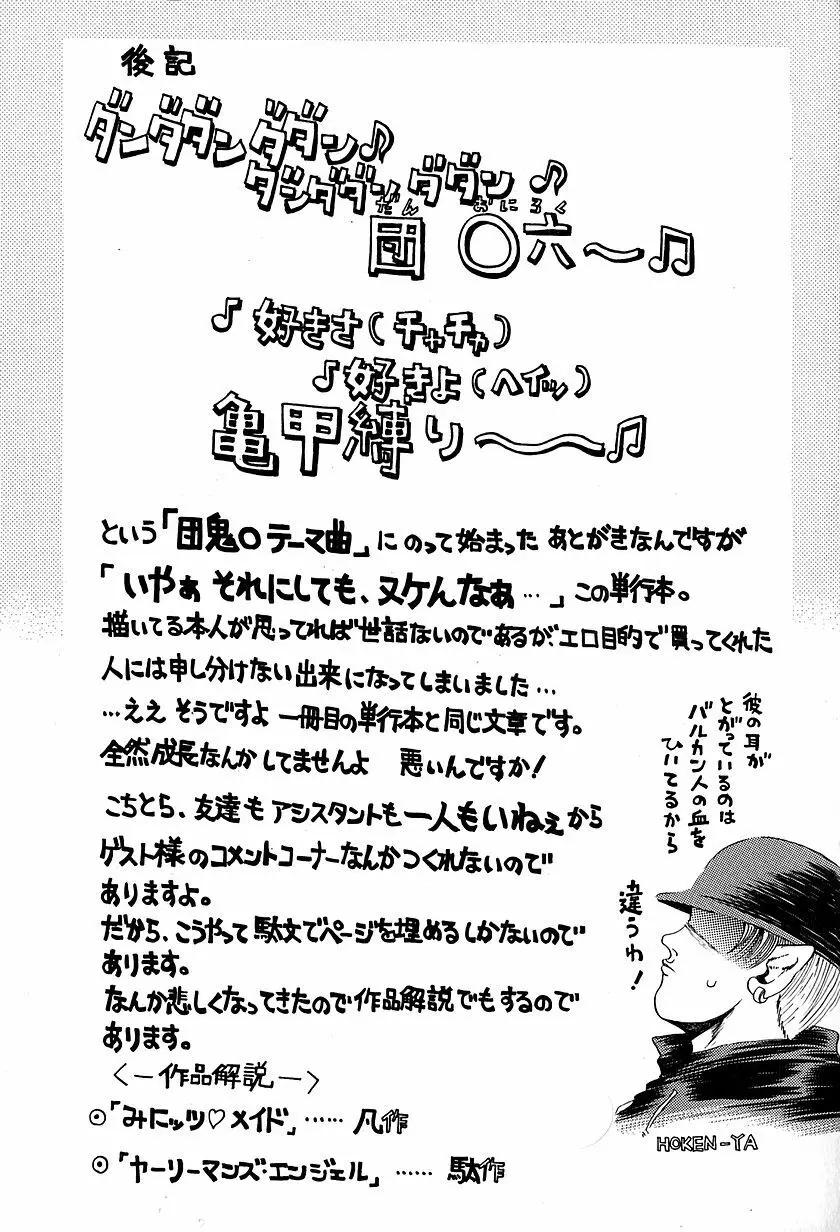 後記
ダンダダンダダン♪
ダンダダンダダン♪
だん おにろく
団〇六〜♫
♪好きさ(チャチャ)
♪好きよ(ヘイッ)
亀甲縛り〜〜♫
という「団鬼〇テーマ曲」にのって始まったあとがきなんですが
「いやぁ それにしても、ヌケんなぁ…」この単行本。
描いてる本人が思ってれば世話ないのであるが、エロ目的で買ってくれた
人には申し分けない出来になってしまいました…
…ええ そうですよ 一冊目の単行本と同じ文章です。
全然成長なんかしてませんよ 悪いんですか!
こちとら、友達もアシスタントも一人もいねぇから
ゲスト様のコメントコーナーなんかつくれないので
ありますよ。
だから、こうやって駄文でページを埋めるしかないので
あります。
なんか悲しくなってきたので作品解説でもするので
あります。
〈—作品解説—〉
◉「みにッツ♡メイド」……凡作
◉「ヤーリーマンズ・エンジェル」……駄作
彼の耳が
とがっているのは
バルカン人の血を
ひいてるから
違うわ!
HOKEN-YA